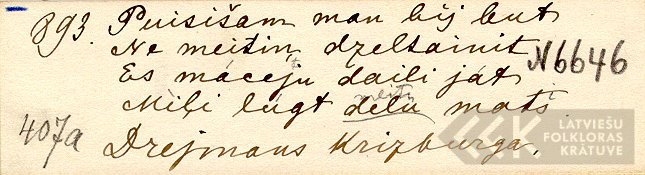 893. Puisišam man bij but
Ne meitiņ dzeltainit
N6646
Es mācēju daili jāt
Miļi lūgt dēlu māti
meitu
407a
Drejmans Krizburgā.
LATVIEŠU
FOLKLORAS
KRĀTUVE